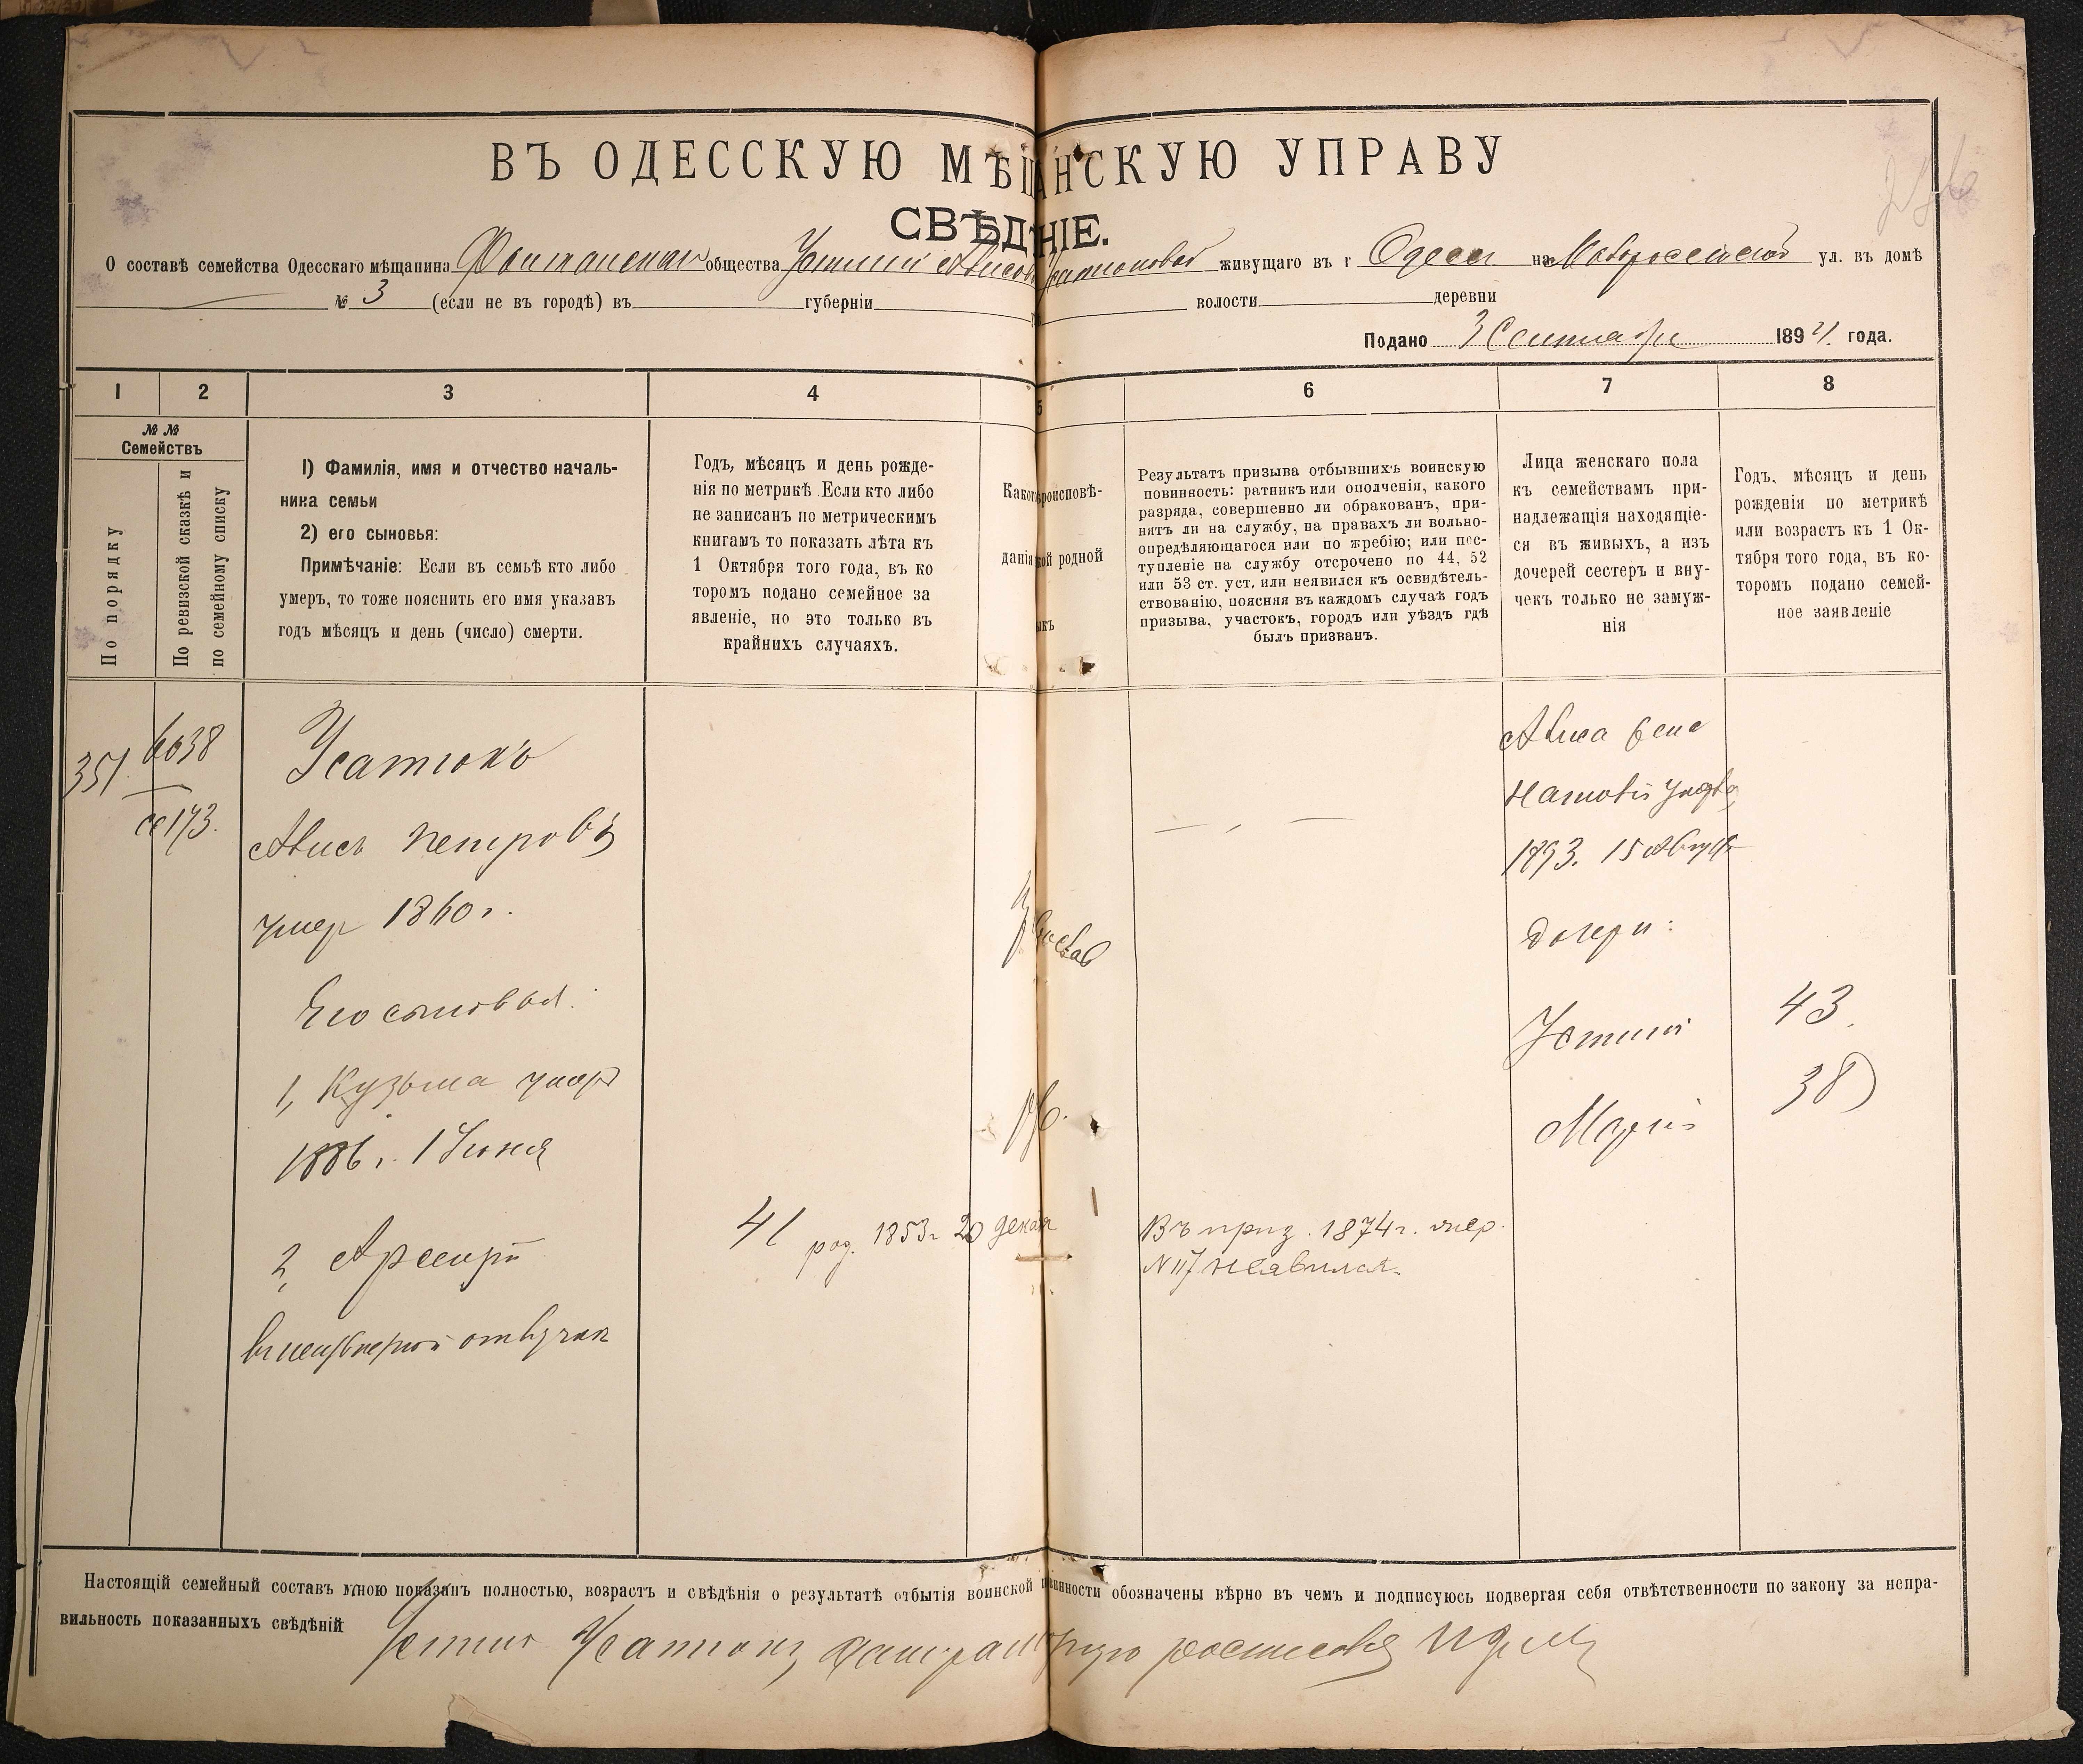 ВЪ ОДЕССКУЮ МѢЩАНСКУЮ УПРАВУ
СВѢДѢНІЕ.
О составѣ семейства Одесскаго мѣщанина общества Устиніи Усатюковой живущаго въ г Одессе на Новороссійской ул. въ домѣ
№ 3 (если не въ городѣ) въ губерніи волости деревни
Подано 3 Сентября 1894 года.
1 2 3 4 5 6 7 8
№ № Семействъ
По порядку
По ревизской сказкѣ и
по семейному списку
1) Фамилія, имя и отчество началь-
ника семьи
2) его сыновья:
Примѣчаніе: Если въ семьѣ кто либо
умеръ, то тоже пояснить его имя указавъ
годъ мѣсяцъ и день (число) смерти.
Годъ, мѣсяцъ и день рожде-
нія по метрикѣ Если кто либо
не записанъ по метрическимъ
книгамъ то показать лѣта къ
1 Октября того года, въ ко
торомъ подано семейное за
явленіе, но это только въ
крайнихъ случаяхъ.
Какого вѣроисповѣ-
данія родной
Результатъ призыва отбывшихъ воинскую
повинность: ратникъ или ополченія, какого
разряда, совершенно ли обракованъ, при-
нятъ ли на службу, на правахъ ли вольно-
опредѣляющагося или по жребію; или пос-
тупленіе на службу отсрочено по 44, 52
или 53 ст. уст. или неявился къ освидѣтель-
ствованію, поясняя въ каждомъ случаѣ годъ
призыва, участокъ, городъ или уѣздъ гдѣ
былъ призванъ.
Лица женскаго пола
къ семействамъ при-
надлежащія находящіе-
ся въ живыхъ, а изъ
дочерей сестеръ и вну-
чекъ только не замуж-
нія
Годъ, мѣсяцъ и день
рожденія по метрикѣ
или возрастъ къ 1 Ок-
тября того года, въ ко-
торомъ подано семей-
ное заявленіе
351
6638
173.
Усатюкъ
Петровъ
умер 1860 г.
Его сыновья:
1, Кузьма умер
1886 г. 1 Июня
2,
41 род. 1853 г 20 декабря
Въ приз. 1874 г.
№ 117 неявился.
жена
1893. 15 Августа
дочери:
Устинія 43.
Марія 38
Настоящій семейный составъ мною показанъ полностью, возрастъ и свѣдѣнія о результатѣ отбытія воинской повинности обозначены вѣрно въ чемъ и подписуюсь подвергая себя отвѣтственности по закону за непра-
вильность показанныхъ свѣдѣній